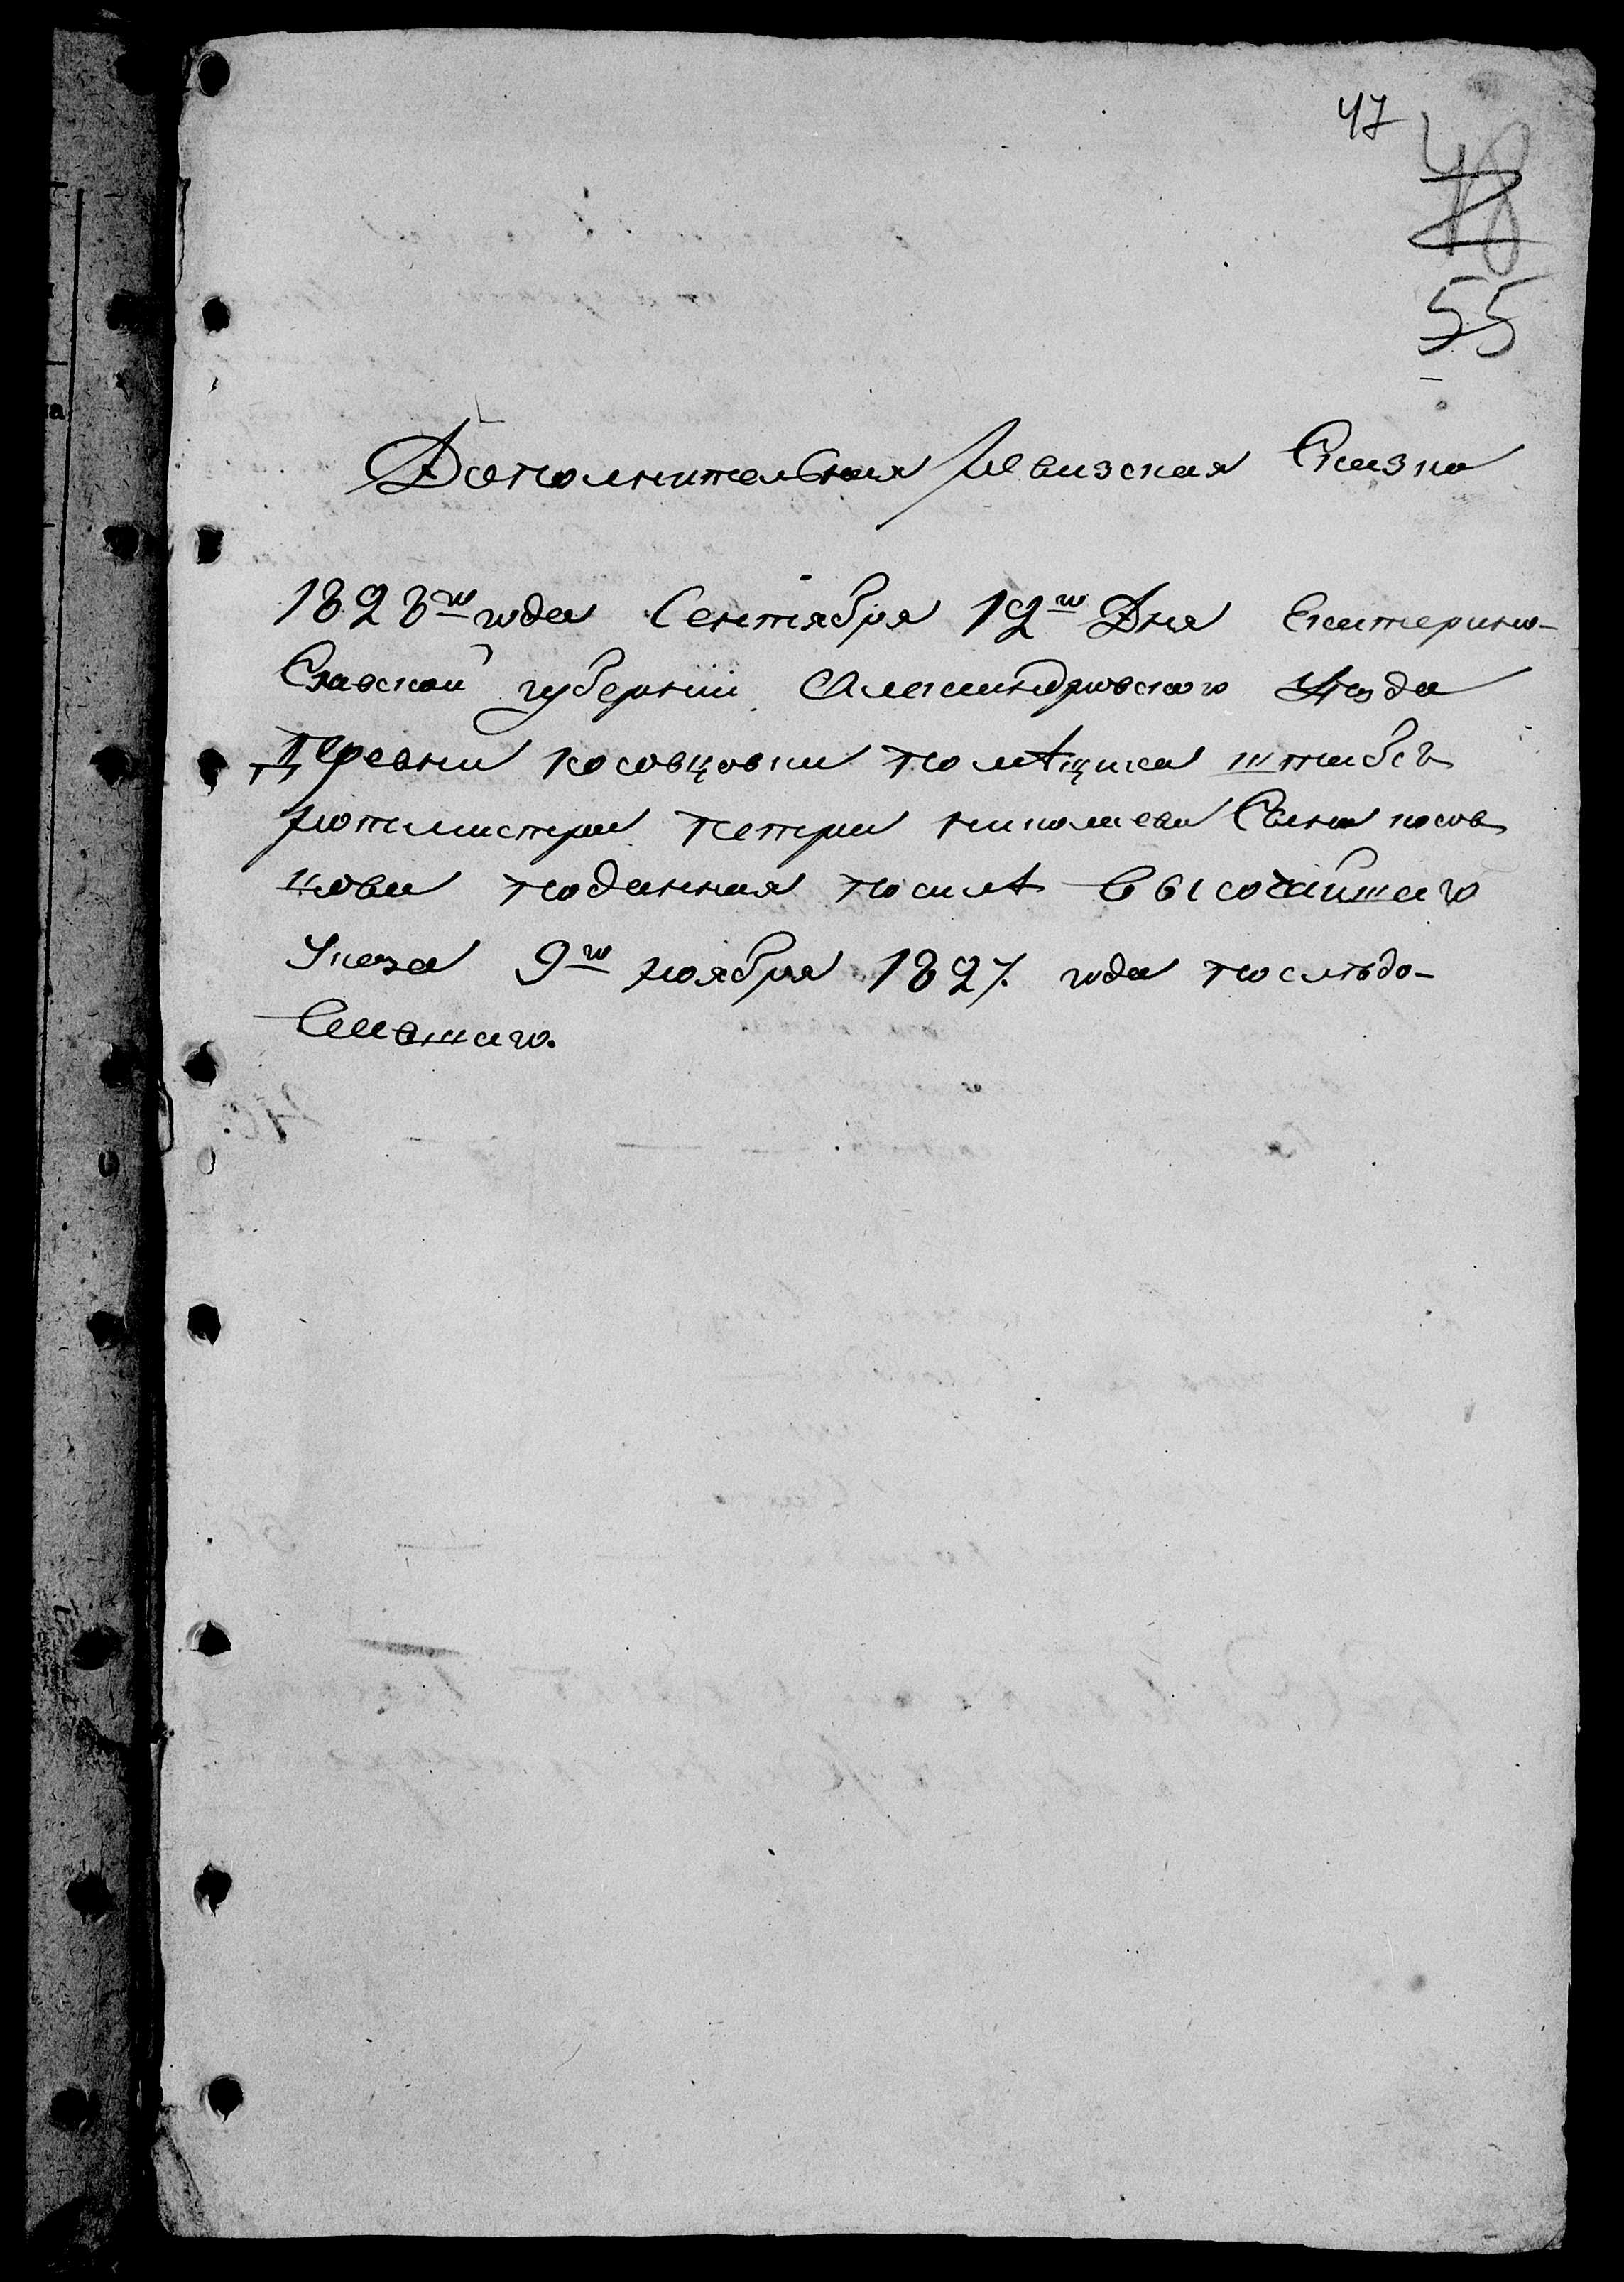 47
48
55
Дополнительная ревизская Сказка
1828го года Сентября 12го Дня Екатерино-
Славской губернии Александровского уезда
Деревни косовцовки помѣщика штабсъ
ротмистра петра николаева Сына косов
цова поданная посилѣ Высочайшаго
Указа 9го ноября 1827. года послѣдо-
Вавшаго.